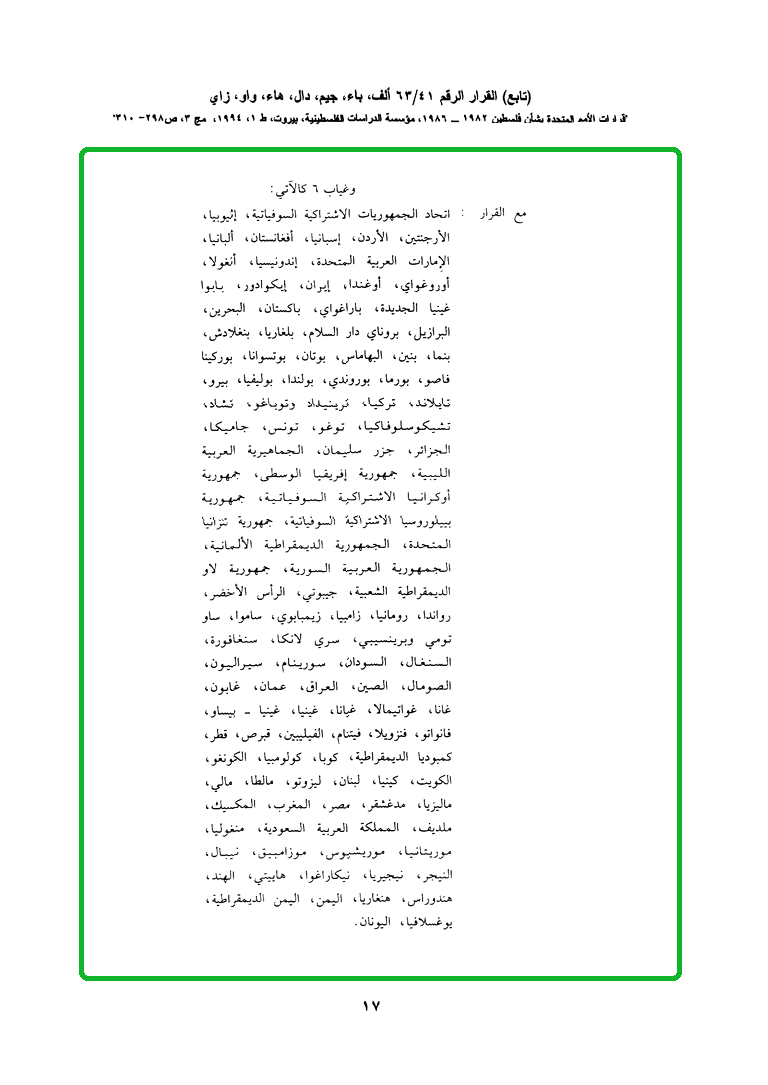 (تابع) القرار الرقم ٦٣/٤١ ألف، باء، جيم، دال، هاء، واو، زاي
"قرارات الأمم المتحدة بشأن فلسطين ١٩٨٢ ــ ١٩٨٦، مؤسسة الدراسات الفلسطينية، بيروت، ط ١، ١٩٩٤، مج ٣، ص٢٩٨- ٣١٠"
وغياب ٦ كالآتي:
مع القرار : اتحاد الجمهوريات الاشتراكية السوفياتية، إثيوبيا،
الأرجنتين، الأردن، إسبانيا، أفغانستان، ألبانيا،
الإمارات العربية المتحدة، إندونيسيا، أنغولا،
أوروغواي، أوغندا، إيران، إيكوادور، بابوا
غينيا الجديدة، باراغواي، باكستان، البحرين،
البرازيل، بروناي دار السلام، بلغاريا، بنغلادش،
بنما، بنين، البهاماس، بوتان، بوتسوانا، بوركينا
فاصو، بورما، بوروندي، بولندا، بوليفيا، بيرو،
تايلاند، تركيا، ترينيداد وتوباغو، تشاد،
تشيكوسلوفاكيا، توغو، تونس، جاميكا،
الجزائر، جزر سليمان، الجماهيرية العربية
الليبية، جمهورية إفريقيا الوسطى، جمهورية
أوكرانيا الاشتراكية السوفياتية، جمهورية
بييلوروسيا الاشتراكية السوفياتية، جمهورية تنزانيا
المتحدة، الجمهورية الديمقراطية الألمانية،
الجمهورية العربية السورية، جمهورية لاو
الديمقراطية الشعبية، جيبوتي، الرأس الأخضر،
رواندا، رومانيا، زامبيا، زيمبابوي، ساموا، ساو
تومي وبرينسيبي، سري لانكا، سنغافورة،
السنغال، السودان، سورينام، سيراليون،
الصومال، الصين، العراق، عمان، غابون،
غانا، غواتيمالا، غيانا، غينيا، غينيا ـ بيساو،
فانواتو، فنزويلا، فيتنام، الفيليبين، قبرص، قطر،
كمبوديا الديمقراطية، كوبا، كولومبيا، الكونغو،
الكويت، كينيا، لبنان، ليزوتو، مالطا، مالي،
ماليزيا، مدغشقر، مصر، المغرب، المكسيك،
ملديف، المملكة العربية السعودية، منغوليا،
موريتانيا، موريشيوس، موزامبيق، نيبال،
النيجر، نيجيريا، نيكاراغوا، هاييتي، الهند،
هندوراس، هنغاريا، اليمن، اليمن الديمقراطية،
يوغسلافيا، اليونان.
١٧